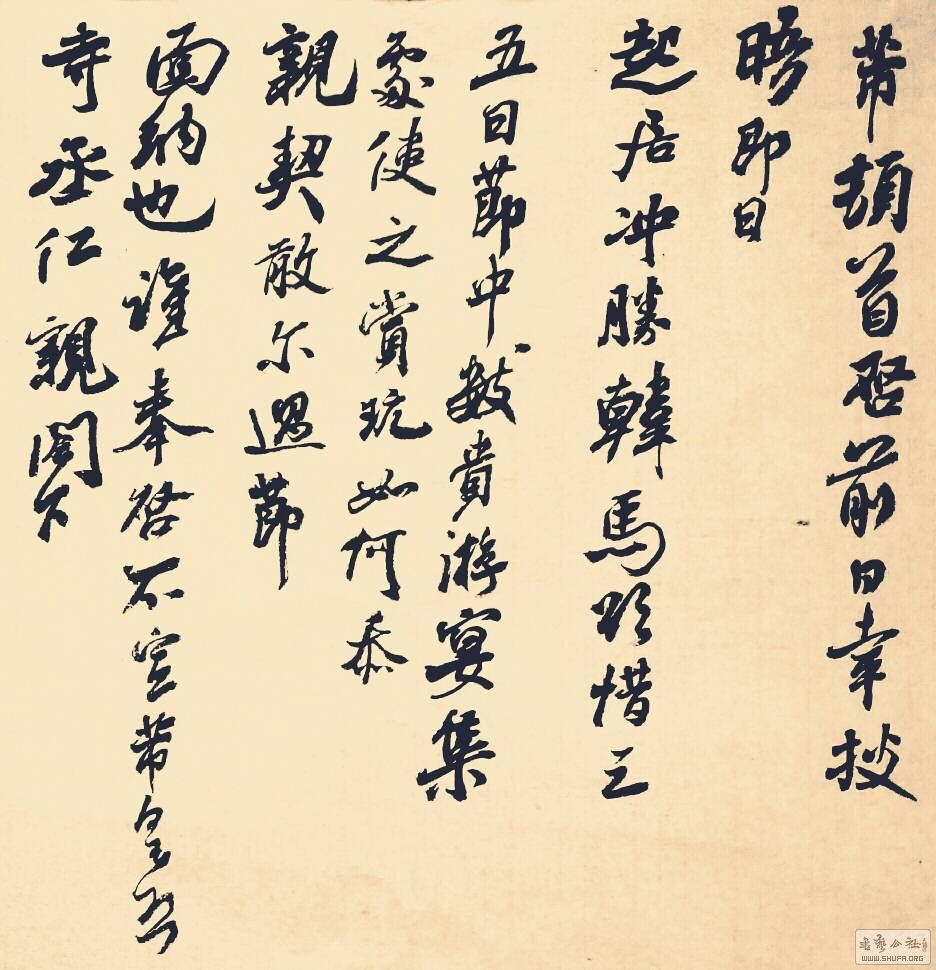 芾頓首啓前日幸披
晤即日
起居沖勝韓馬欲借三
五日節中數貴游宴集
處使之賞玩如何忝
親契敢尔過節
面納也謹奉啓不宣芾皇恐
寺丞仁親閤下
書藝公社
WWW.SHUFA.ORG